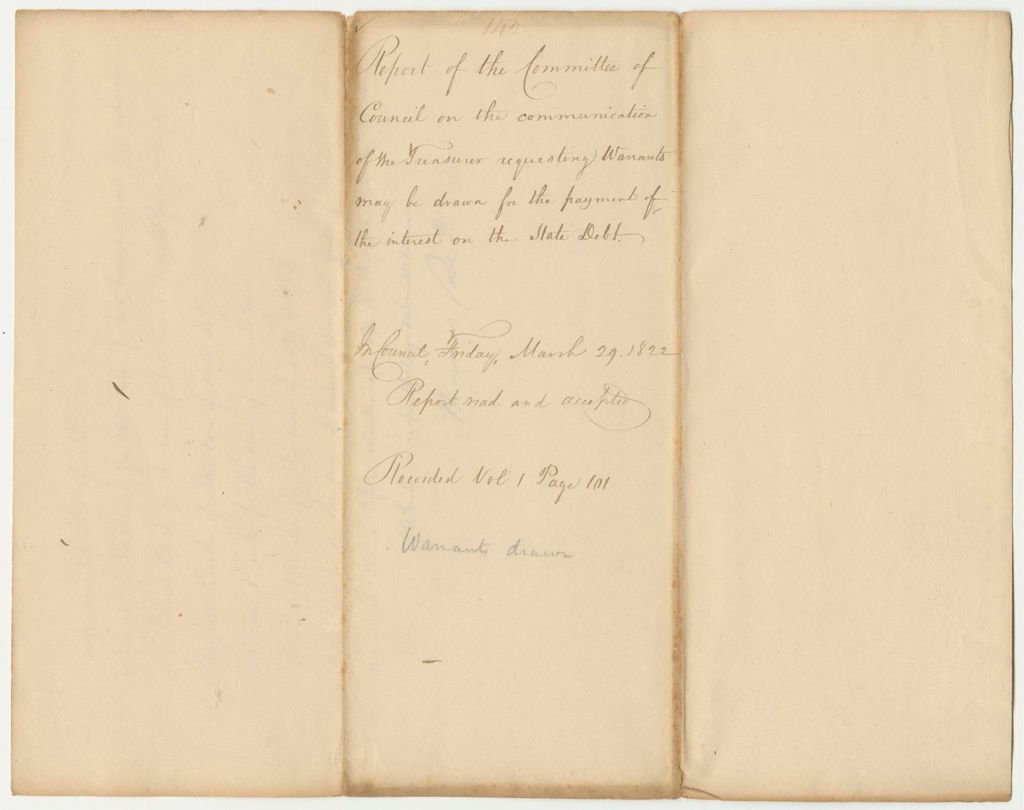 Report of the Committee of
Council on the communication
of the Treasurer requesting Warrants
may be drawn for the payment of
the interest on the State Debt.
In Council, Friday, March 29. 1822
Report read and accepted
Recorded Vol 1 Page 101
Warrants drawn